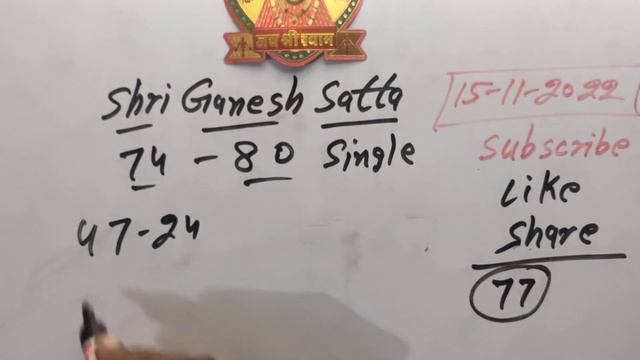 जय श्री श्याम
Shri Ganesh Satta
74 - 80 Single
47-24
15-11-2022
Subscribe
Like
Share
77